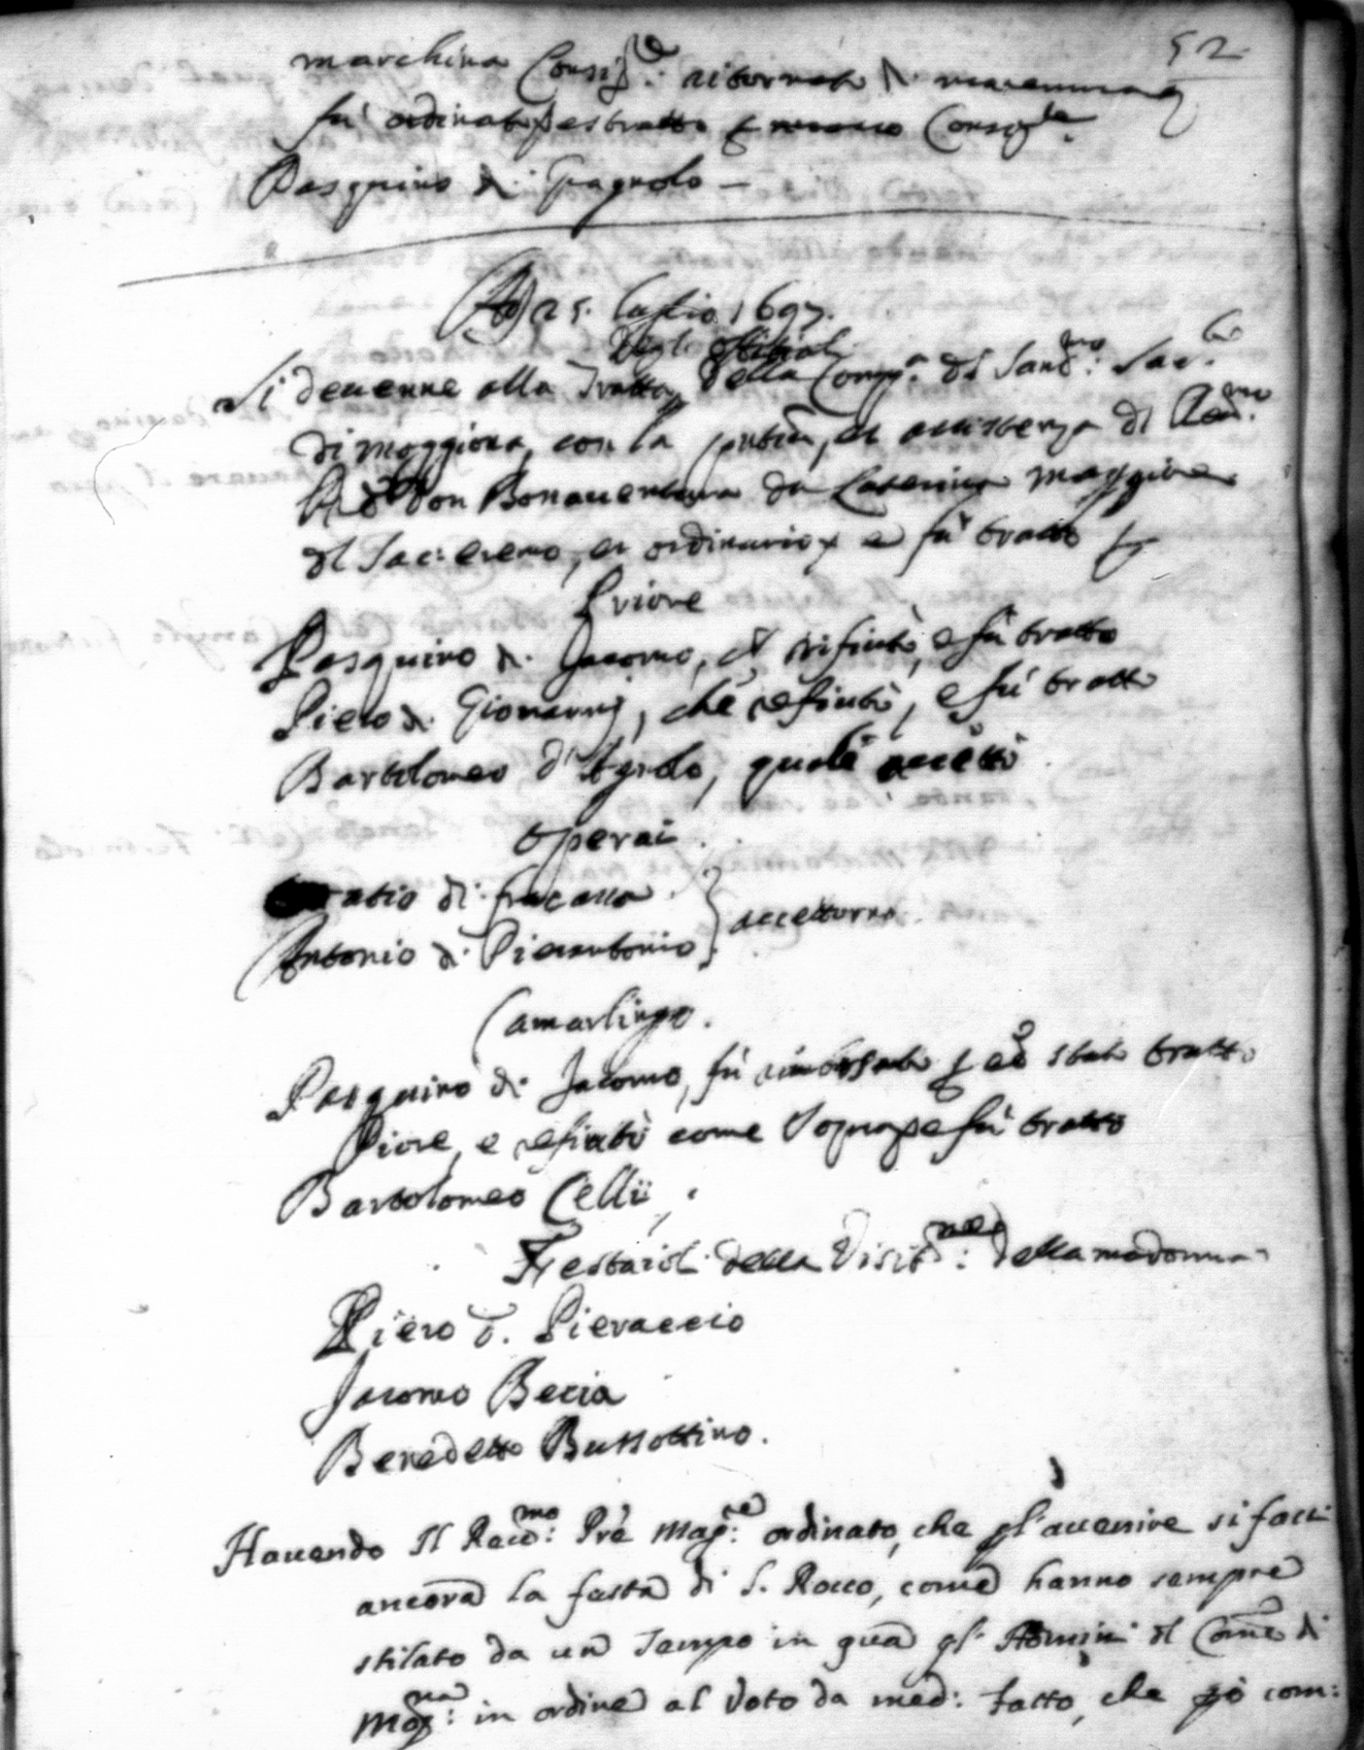 52
marchino Consig.re ritornato di maremma
fu ordinato estratto Consig.re
Pasquino di Gagnolo –
Ad 25. luglio 1697.
degli offitiali
Si devenne alla Tratta della Comp.a del Sant.mo Sac.to
di moggiona, con la et assistenza di Rev.mo
Pre don Bonaventura da Caterina maggiore
del Sac: eremo, et ordinario e fu tratto p
Priore
Pasquino di Jacomo, rifiutò, e fu tratto
Piero di Giovannj, che refiutò, e fu tratto
Bartolomeo d'Agnolo, quale accettò
Operai.
di fracasso
Antonio di Pierantonio } accettorno.
Camarlingo.
Pasquino di Jacomo, fu rimborsato p stato tratto
Priore, e refiutò come sopra e fu tratto
Bartolomeo Cellii,
Festaioli della Visit.ne della madonna
Piero d. Pieraccio
Jacomo Becia
Benedetto Bussottino.
Havendo Il Rev.mo Pre Mag.re ordinato, che p l'avenire si facci
ancora la festa di S. Rocco, come hanno sempre
stilato da un tempo in qua gl' Homini del Com.e di
Mog.na in ordine al Voto da med: fatto, che però com: